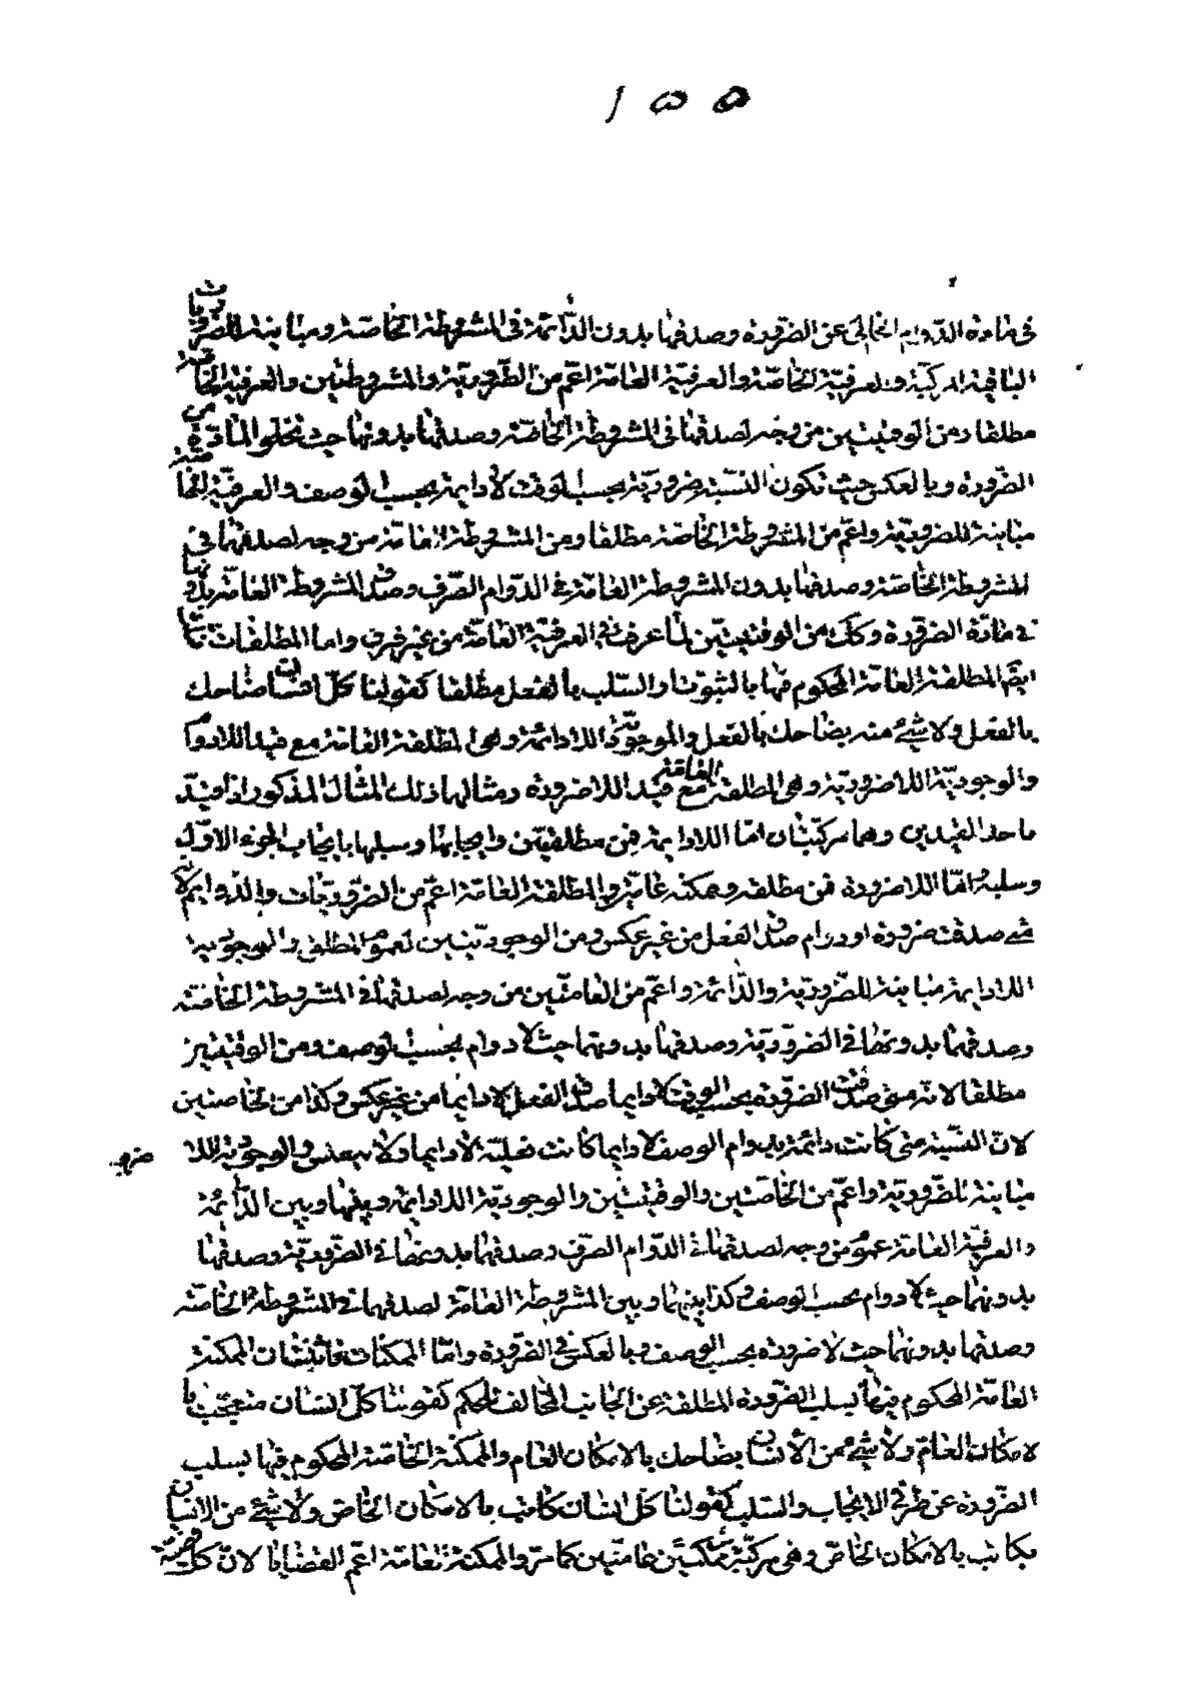 ١٥٥
في مادة الدوام الخالي عن الضرورة وصدقها بدون الدائمة في المشروطة الخاصة ومباينة للضروريات
الباقية المركبة والعرفية الخاصة والعرفية العامة اعم من الضرورية والمشروطتين والعرفية الخاصة
مطلقا ومن الوقتيتين من وجه لصدقها في المشروطة الخاصة وصدقها بدونها حيث تخلو المادة من
الضرورة وبالعكس حيث تكون النسبة ضرورية بحسب الوقت لا دايمة بحسب الوصف والعرفية الخاصة
مباينة للضرورية واعم من المشروطة الخاصة مطلقا ومن المشروطة العامة من وجه لصدقها في
المشروطة الخاصة وصدقها بدون المشروطة العامة في الدوام الصرف وصدق المشروطة العامة بدونها
في مادة الضرورة وكك من الوقتيتين لما عرفت في العرفية العامة من غير فرق واما المطلقات
ايضا المطلقة العامة المحكوم فيها بالثبوت او السلب بالفعل مطلقا كقولنا كل انسان ضاحك
بالفعل ولا شئ منه بضاحك بالفعل والموجودية اللادائمة وهى المطلقة العامة مع قيد اللادوام
والوجودية اللاضرورية وهى المطلقة العامة مع قيد اللاضرورة ومثالها ذلك المثال المذكور اذا قيد
باحد القيدين وهما مركبتان اما اللادايمة فمن مطلقتين وايجابها وسلبها بايجاب الجزء الاول
وسلبه واما اللاضرورة فمن مطلقة وممكنة عامة والمطلقة العامة اعم من الضروريات والدوايم لانه
متى صدقت ضرورة او دوام صدق الفعل من غير عكس ومن الوجوديتين لعموم المطلق والوجودية
اللادايمة مباينة للضرورية والدائمة واعم من العامتين من وجه لصدقها في المشروطة الخاصة
وصدقهما بدونها في الضرورية وصدقها بدونهما حيث لا دوام بحسب الوصف ومن الوقتيتين
مطلقا لانه متى صدقت الضرورة بحسب الوقت لا دايما صدق الفعل لا دايما من غير عكس وكذا من الخاصتين
لان النسبة متى كانت دائمة بدوام الوصف لا دايما كانت فعلية لا دايما ولا ينعكس والوجودية اللا ضرورية
مباينة للضرورية واعم من الخاصتين والوقتيتين والوجودية اللادايمة وبينها وبين الدائمة
والعرفية العامة عموم من وجه لصدقها في الدوام الصرف وصدقهما بدونها في الضرورية وصدقها
بدونهما حيث لا دوام بحسب الوصف وكذا بينها وبين المشروطة العامة لصدقهما في المشروطة الخاصة
وصدقها بدونها حيث لا ضرورة بحسب الوصف وبالعكس في الضرورة واما الممكنات فاثنتان الممكنة
العامة المحكوم فيها بسلب الضرورة المطلقة عن الجانب المخالف للحكم كقولنا كل انسان متعجب با
لامكان العام ولا شئ من الانسان بضاحك بالامكان العام والممكنة الخاصة المحكوم فيها بسلب
الضرورة عن طرفي الايجاب والسلب كقولنا كل انسان كاتب بالامكان الخاص ولا شئ من الانسان
بكاتب بالامكان الخاص وهى مركبة من ممكنتين عامتين كما مر والممكنة العامة اعم القضايا لان كل قضية